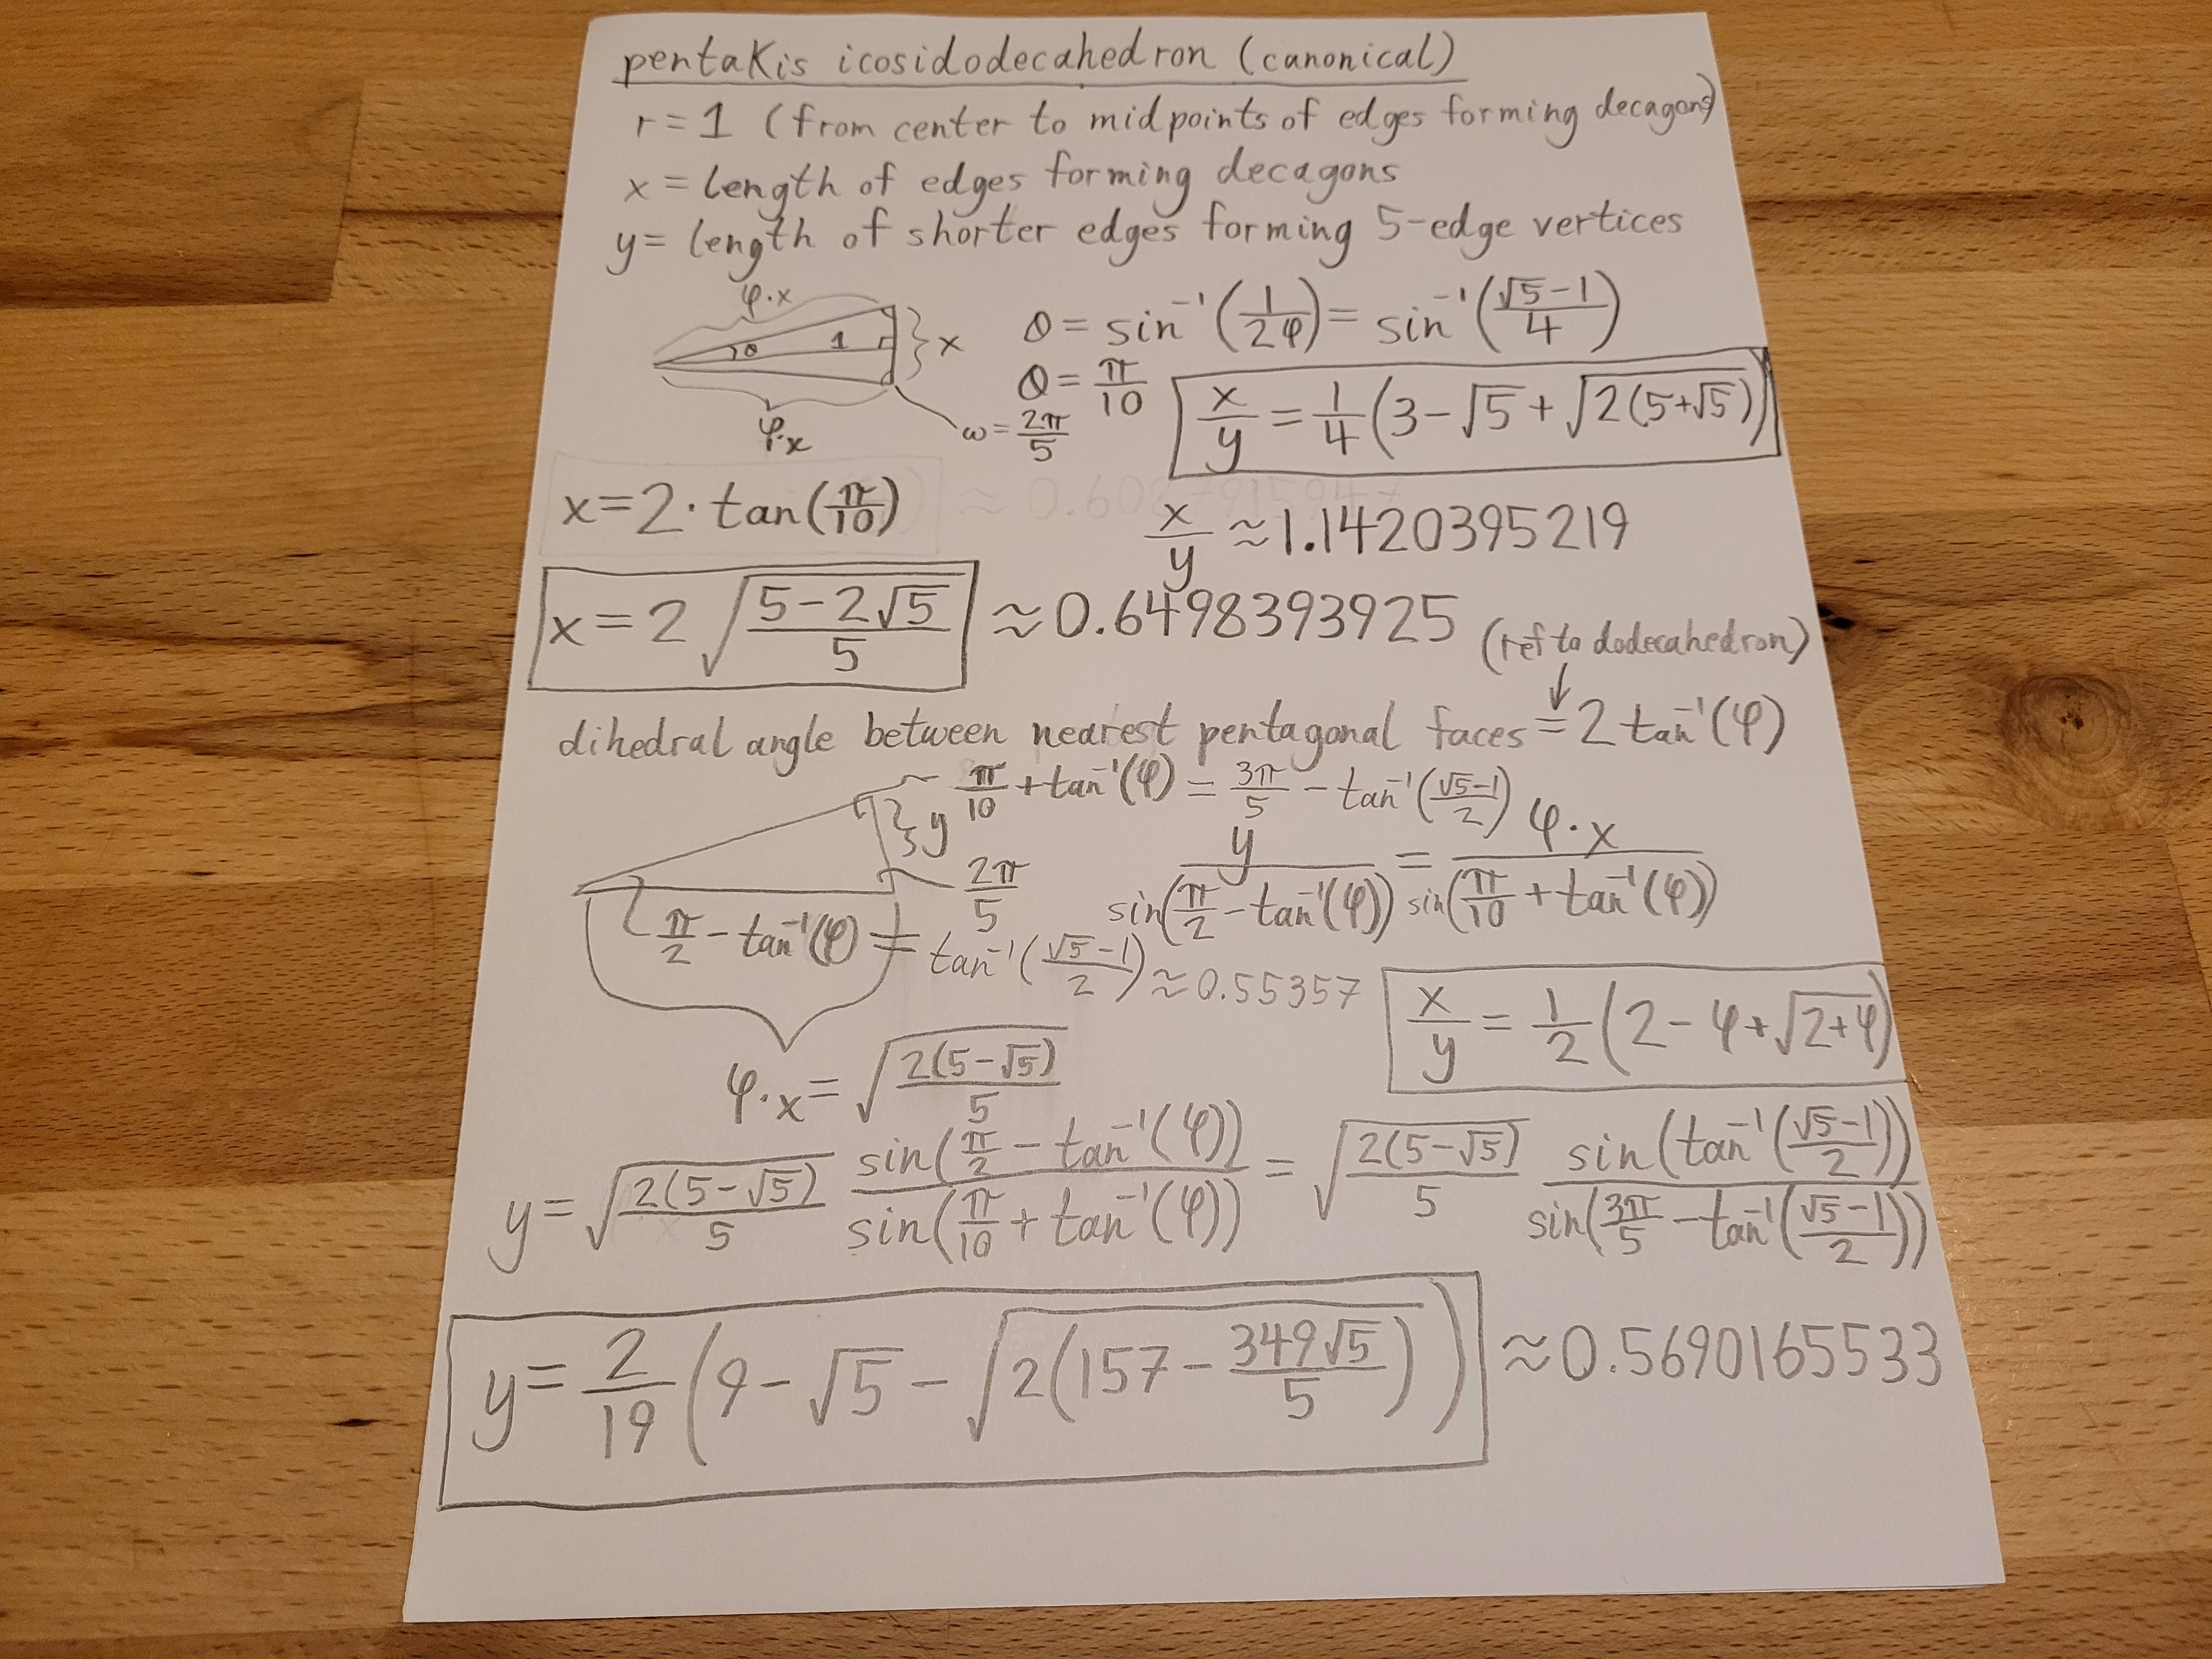 pentakis icosidodecahedron (canonical)
r = 1 (from center to midpoints of edges forming decagons)
x = length of edges forming decagons
y = length of shorter edges forming 5-edge vertices
φ·x
θ
1
x
φ·x
ω = 2π/5
θ = sin⁻¹(1/2φ) = sin⁻¹((√5-1)/4)
θ = π/10
x/y = 1/4(3-√5+√(2(5+√5)))
x = 2·tan(π/10)
x/y ≈ 1.1420395219
x = 2√((5-2√5)/5) ≈ 0.6498393925
(ref to dodecahedron)
↓
dihedral angle between nearest pentagonal faces = 2 tan⁻¹(φ)
π/10 + tan⁻¹(φ) = 3π/5 - tan⁻¹((√5-1)/2)
y
2π/5
y/sin(π/2 - tan⁻¹(φ)) = φ·x/sin(π/10 + tan⁻¹(φ))
π/2 - tan⁻¹(φ) = tan⁻¹((√5-1)/2) ≈ 0.55357
x/y = 1/2(2-φ+√(2+φ))
φ·x = √(2(5-√5)/5)
y = √(2(5-√5)/5) sin(π/2 - tan⁻¹(φ))/sin(π/10 + tan⁻¹(φ)) = √(2(5-√5)/5) sin(tan⁻¹((√5-1)/2))/sin(3π/5 - tan⁻¹((√5-1)/2))
y = 2/19(9-√5-√(2(157-349√5/5))) ≈ 0.5690165533